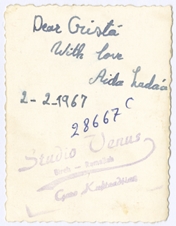 Dear Cristá
With love
Aida
2-2-1967
28667 C
Studio Venus